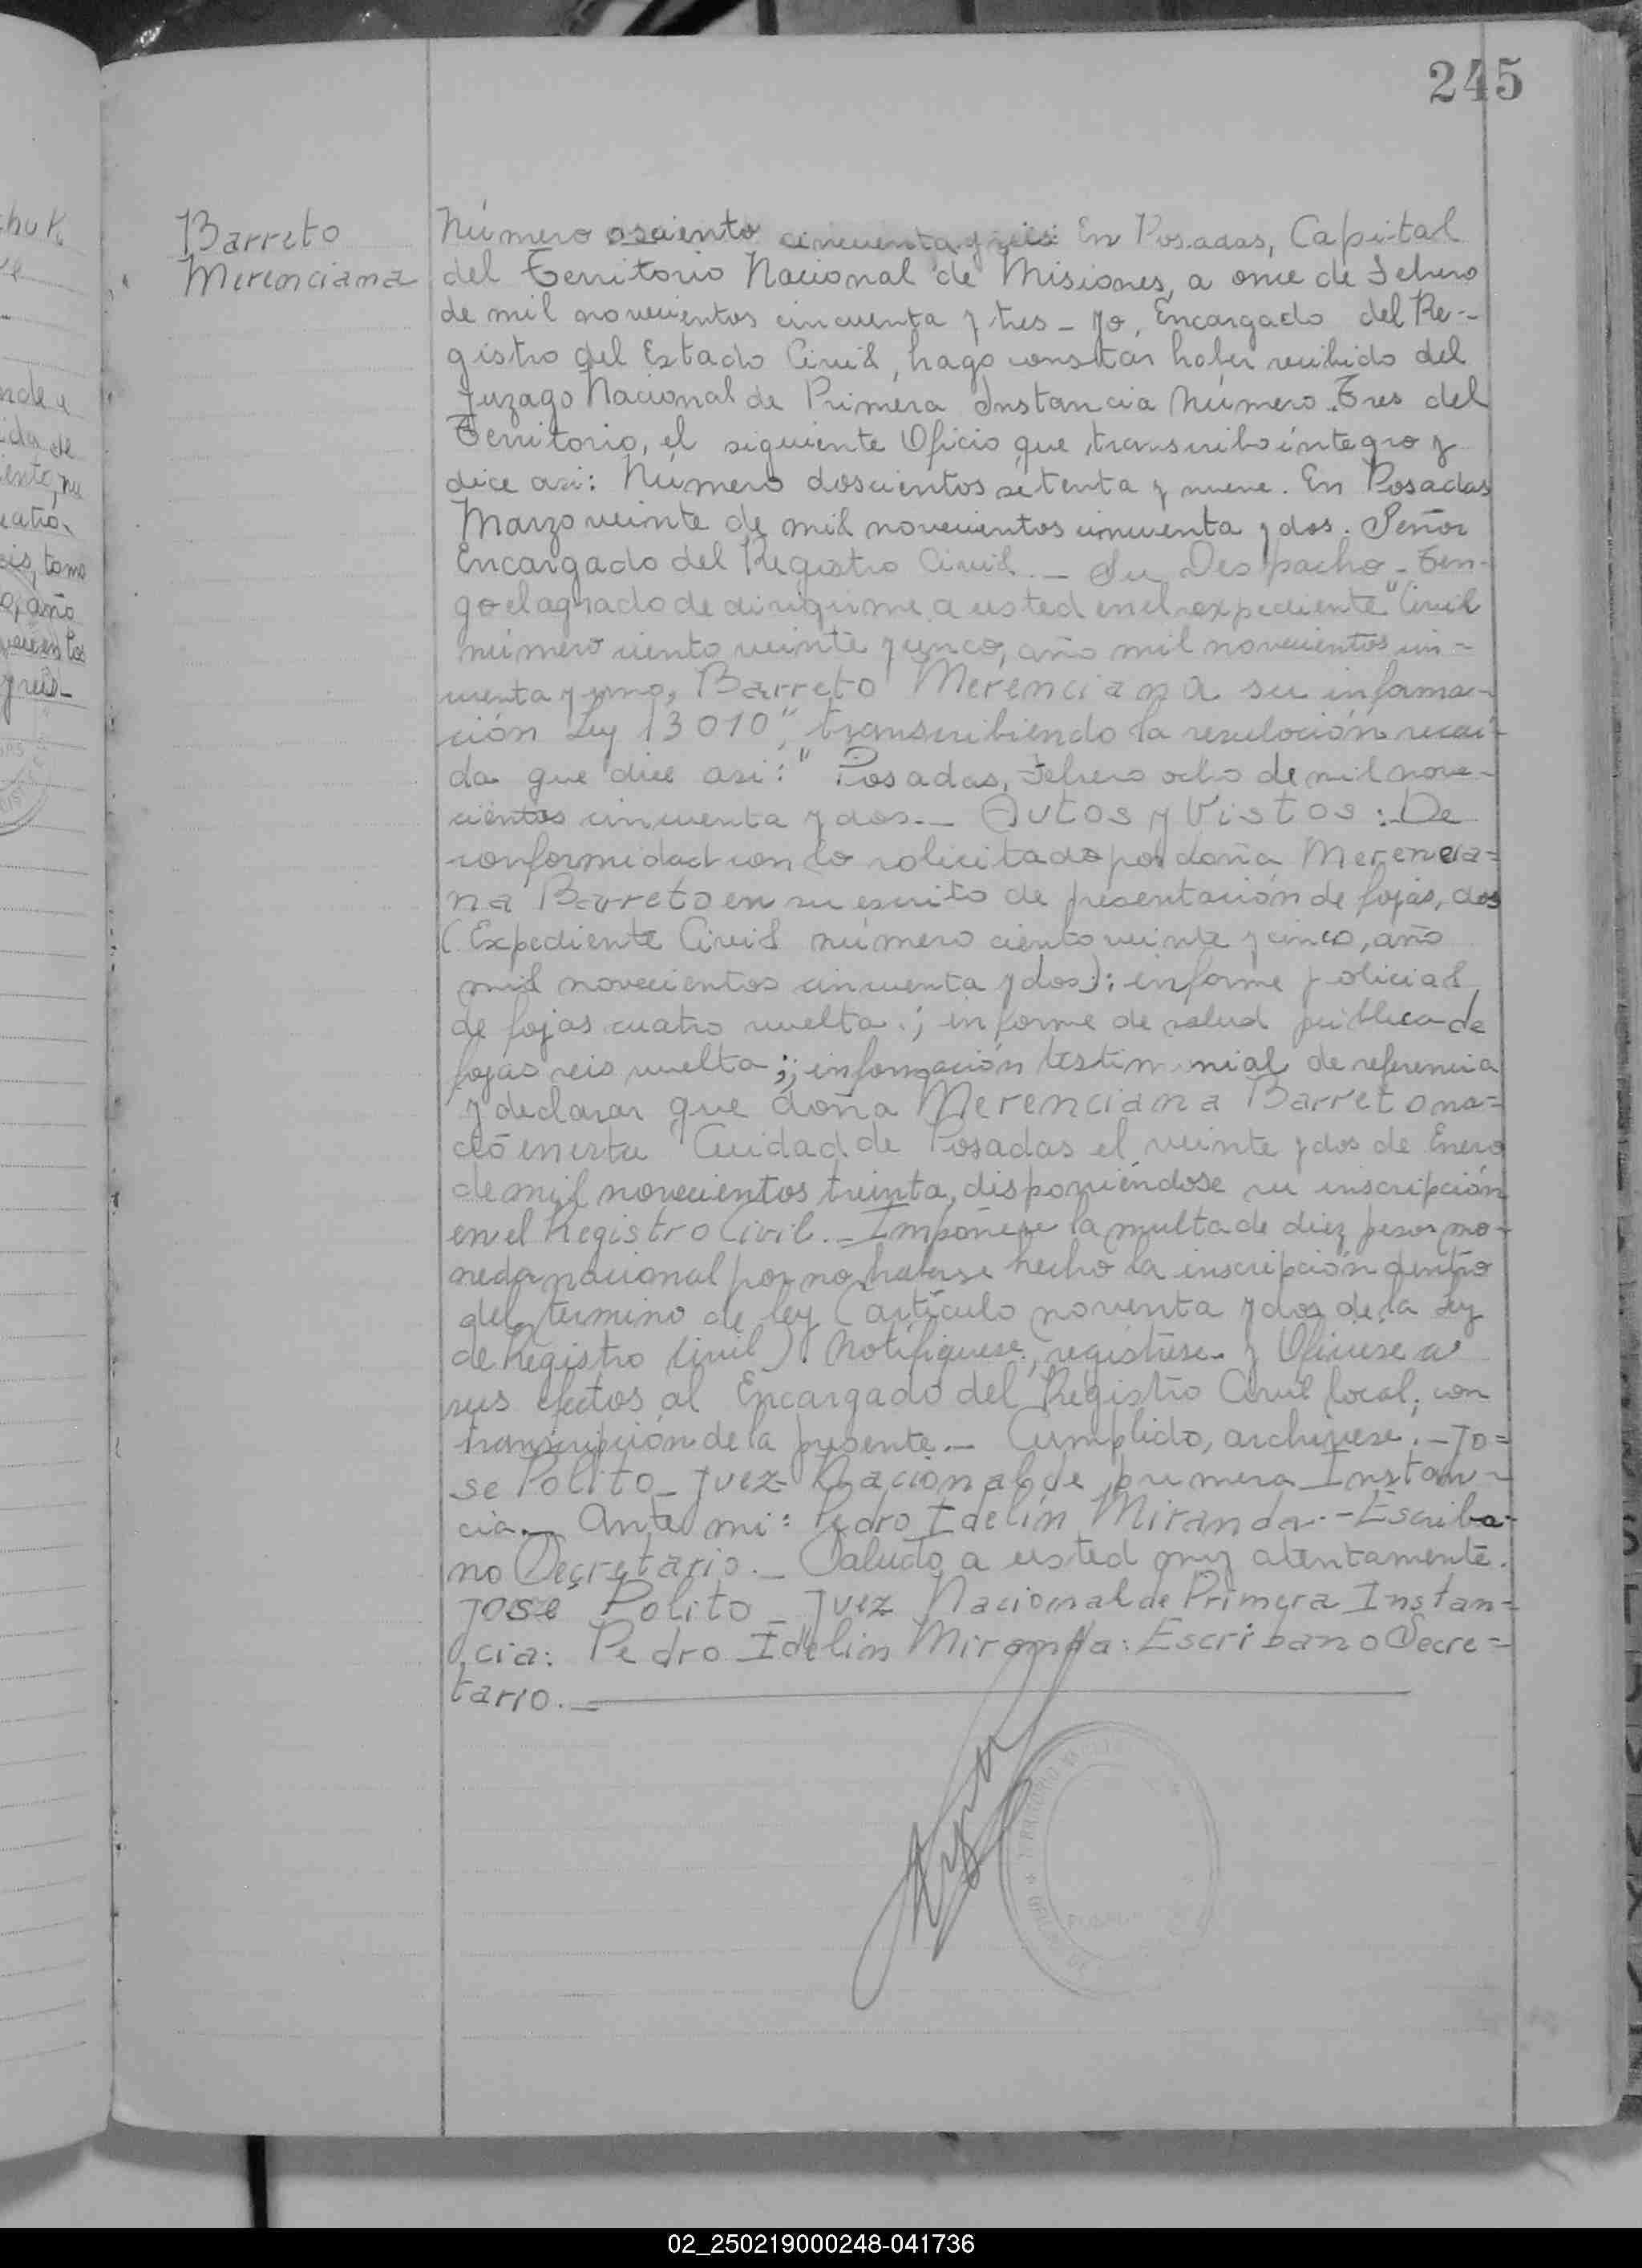 245
Barreto
Merenciana
Número osciento cincuenta y seis En Posadas, Capital
del Territorio Nacional de Misiones, a once de Febrero
de mil novecientos cincuenta y tres - Yo, Encargado del Re-
gistro del Estado Civil, hago constar haber recibido del
Juzago Nacional de Primera Instancia Número Tres del
Territorio, el siguiente Oficio que transcribo íntegro y
dice asi: Número doscientos setenta y nueve. En Posadas
Marzo veinte de mil novecientos cincuenta y dos. Señor
Encargado del Registro Civil. - Su Despacho - Ten-
go el agrado de dirigirme a usted en el expediente "Civil
número ciento veinte y cinco, año mil novecientos cin-
cuenta y uno, Barreto Merenciana su informa-
ción Ley 13010", transcribiendo la resuloción recai-
da que dice asi: "Posadas, Febrero ocho de mil nove-
cientos cincuenta y dos.- Autos y Vistos: De
conformidad con lo solicitado por doña Merencia=
na Barreto en su escrito de presentación de fojas, dos
(Expediente Civil número ciento veinte y cinco, año
mil novecientos cincuenta y dos): informe policial
de fojas cuatro vuelta.; informe de salud publica de
fojas seis vuelta;; información testimonial de referencia
y declarar que doña Merenciana Barreto na=
ció en esta Cuidad de Posadas el veinte y dos de Enero
de mil novecientos treinta, disponiéndose su inscripción
en el Registro Civil.- Impónese la multa de diez pesos mo-
neda nacional por no haberse hecho la inscripción dentro
del termino de ley (artículo noventa y dos de la Ley
de Registro Civil). Notifíquese, regístrese y Ofíciese a
sus efectos al Encargado del Registro Civil local, con
transcripción de la presente.- Cumplido, archívese.- Jo=
se Polito - Juez Nacional de primera Instan-
cia.- Ante mi: Pedro Idelín Miranda.- Escriba-
no Secretario.- Saludo a usted muy atentamente.
José Polito - Juez Nacional de Primera Instan=
cia: Pedro Idelin Miranda: Escribano Secre=
tario.-
02_250219000248-041736